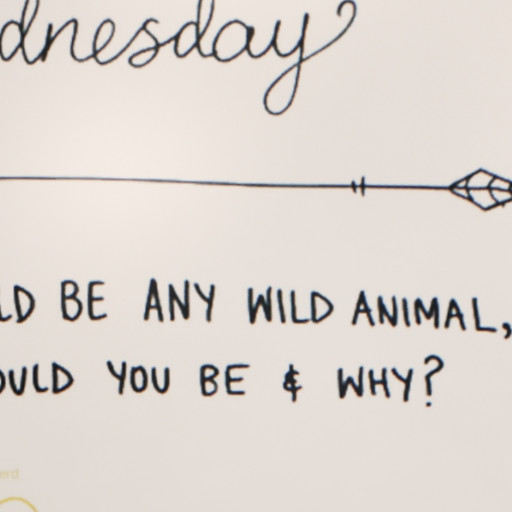 dnesday
LD BE ANY WILD ANIMAL,
OULD YOU BE & WHY?
erd